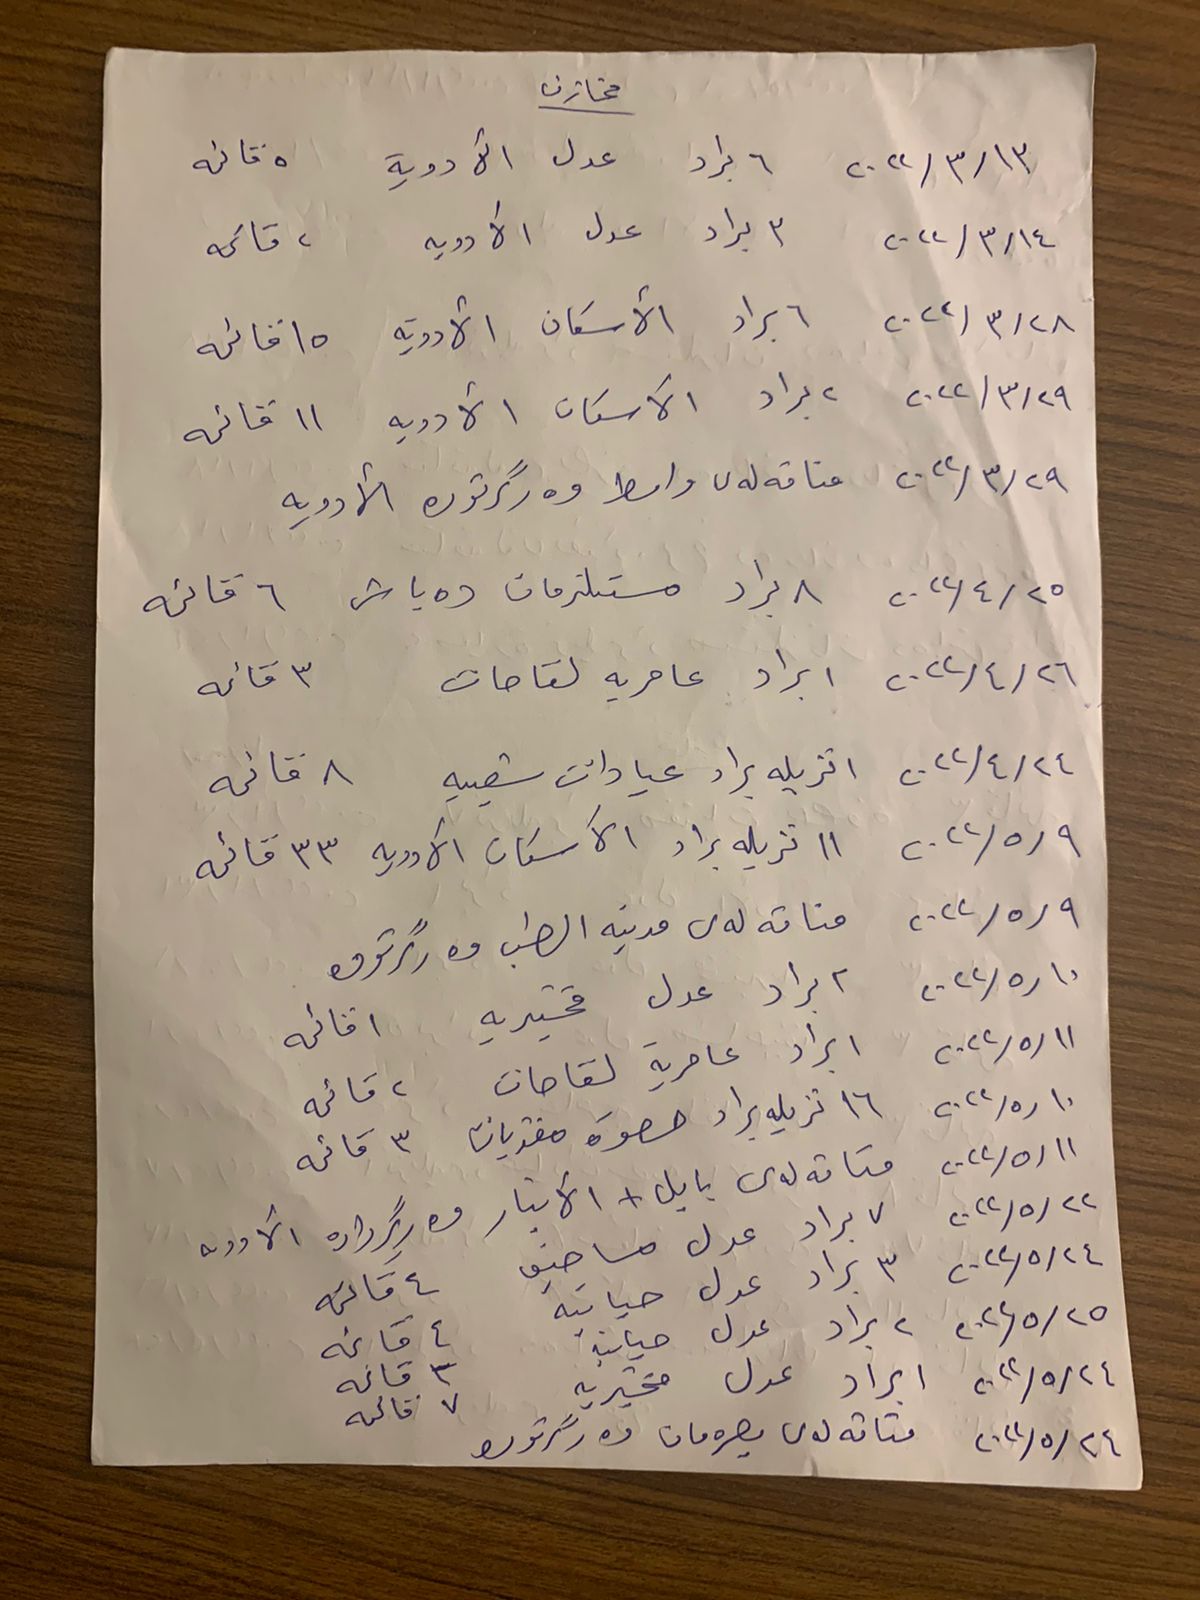 مخازن
٢٠٢٢/٣/١٣ ٦ براد عدل الأدوية ٥ قائمه
٢٠٢٢/٣/١٤ ٣ براد عدل الأدويه ٢ قائمه
٢٠٢٢/٣/٢٨ ٦ براد الأسكان الأدويه ١٥ قائمه
٢٠٢٢/٣/٢٩ ٢ براد الأسكان الأدويه ١١ قائمه
٢٠٢٢/٣/٢٩ مناقه‌له‌ی واسط وه‌رگرتوه الأدويه
٢٠٢٢/٤/٢٥ ٨ براد مستلزمات ده‌باش ٦ قائمه
٢٠٢٢/٤/٢٦ ١ براد عامريه لقاحات ٣ قائمه
٢٠٢٢/٤/٢٤ ١ تريله براد عيادات شعبيه ٨ قائمه
٢٠٢٢/٥/٩ ١١ تريله براد الأسكان الأدويه ٣٣ قائمه
٢٠٢٢/٥/٩ مناقه‌له‌ی مدينه الطب وه‌رگرتوه
٢٠٢٢/٥/١٠ ٢ براد عدل مختبريه ١ قائمه
٢٠٢٢/٥/١١ ١ براد عامرية لقاحات ٢ قائمه
٢٠٢٢/٥/١٠ ١٦ تريله براد مغذيات ٣ قائمه
٢٠٢٢/٥/١١ مناقه‌له‌ی بابل + الأنبار الأدويه
٢٠٢٢/٥/٢٢ ٧ براد عدل مساحيق ٤ قائمه
٢٠٢٢/٥/٢٤ ٣ براد عدل حياتيه ٤ قائمه
٢٠٢٢/٥/٢٥ ٢ براد عدل حياتيه ٣ قائمه
٢٠٢٢/٥/٢٤ ١ براد عدل مختبريه ٧ قائمه
٢٠٢٢/٥/٢٤ مناقه‌له‌ی وه‌رگرتوه